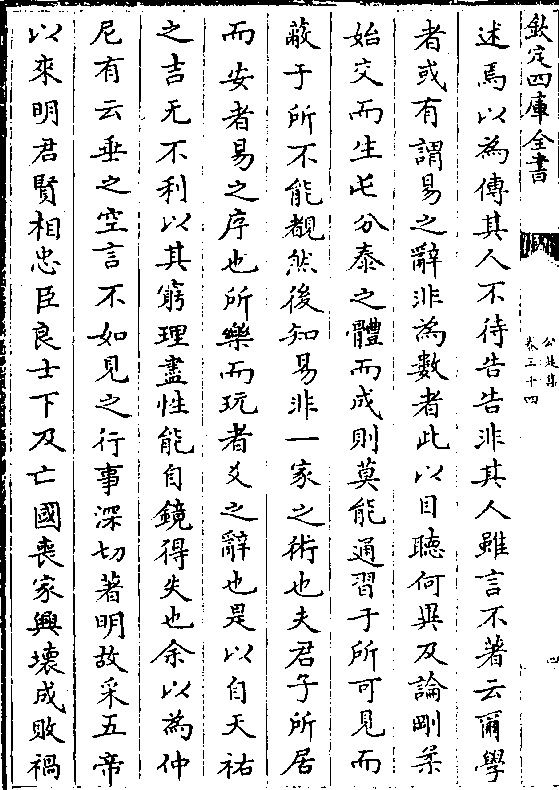 欽定四庫全書
公是集
卷三十四
述焉以為傳其人不待告告非其人雖言不著云爾學
者或有謂易之辭非為數者此以目聽何異及論剛柔
始交而生屯分泰之體而成則莫能通習于所可見而
蔽于所不能覩然後知易非一家之術也夫君子所居
而安者易之序也所樂而玩者爻之辭也是以自天祐
之吉无不利以其窮理盡性能自鏡得失也余以為仲
尼有云垂之空言不如見之行事深切著明故采五帝
以來明君賢相忠臣良士下及亡國喪家興壞成敗禍